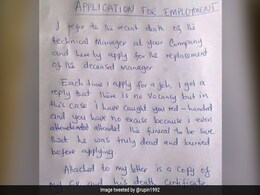 APPLICATION FOR EMPLOYMENT
I refer to the recent death of the
technical Manager at your Company
and hereby apply for the replacement
of the deceased manager.
Each time I apply for a job, I get a
reply that there is no vacancy but in
this case I have caught you red-handed
and you have no excuse because I even
attended his funeral to be sure
that he was truly dead and buried
before applying.
Attached to my letter is a copy of
my CV and his death certificate.
Image tweeted by @rupin1992